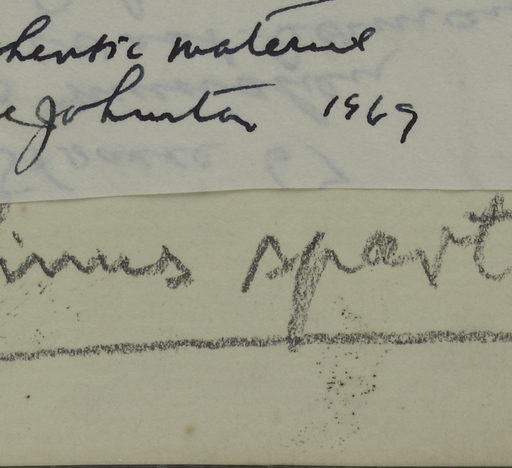 hentic material
e Johnston 1969
inus spart